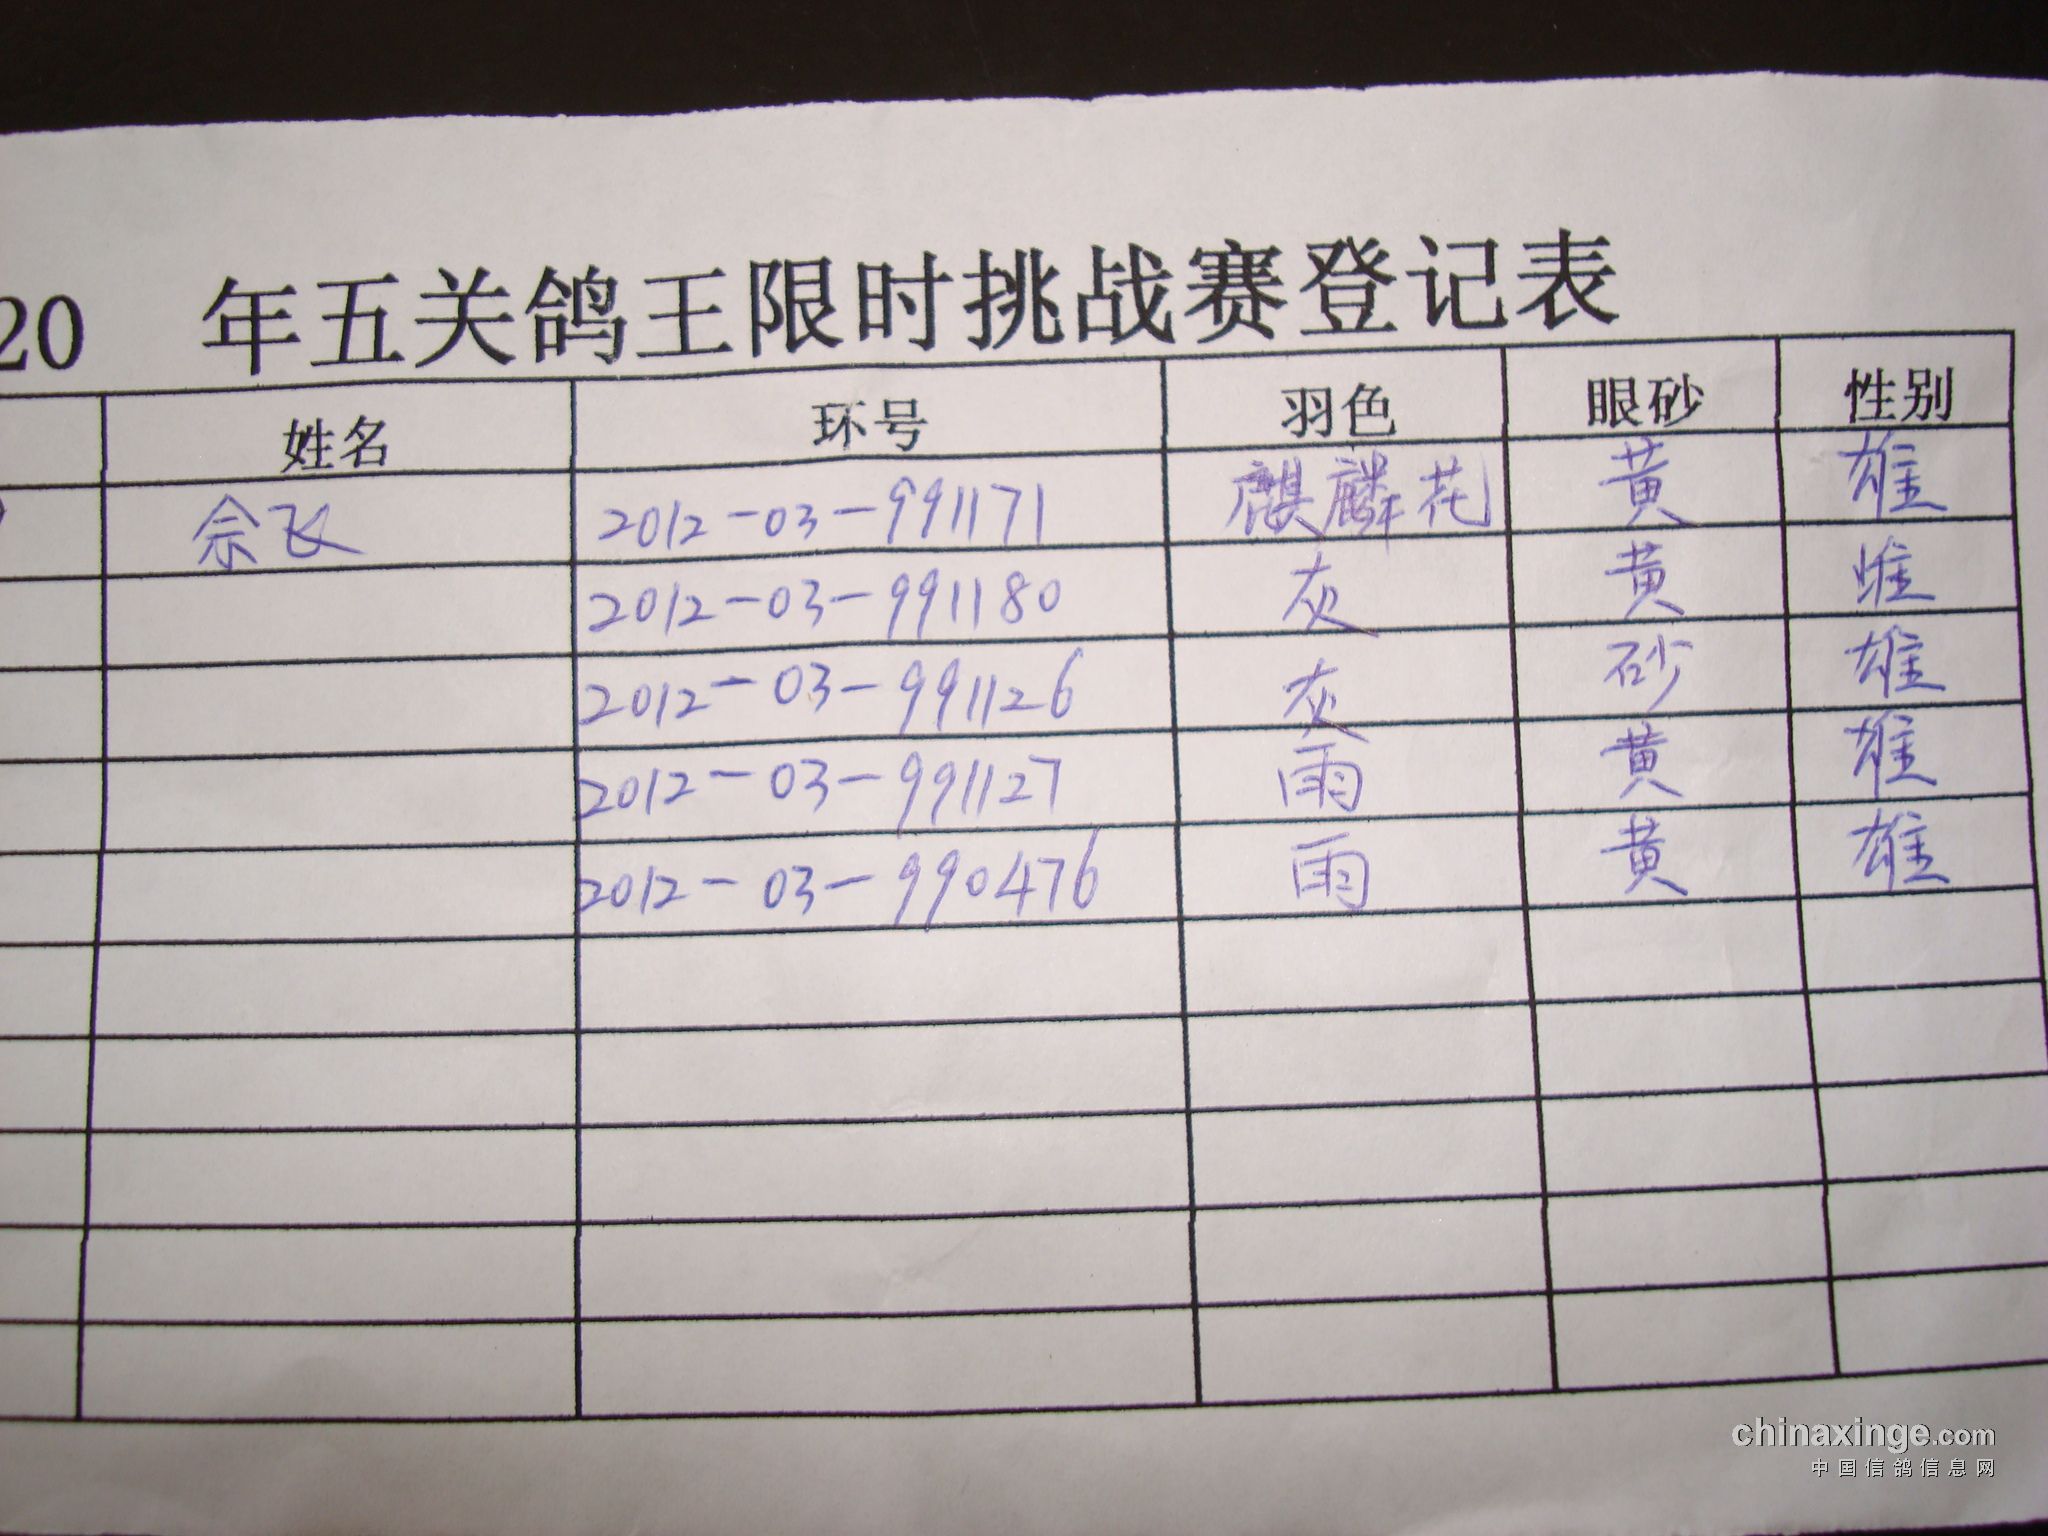 20 年五关鸽王限时挑战赛登记表
姓名 环号 羽色 眼砂 性别
佘飞 2012-03-991171 麒麟花 黄 雄
2012-03-991180 灰 黄 雄
2012-03-991126 灰 砂 雄
2012-03-991127 雨 黄 雄
2012-03-990476 雨 黄 雄
chinaxinge.com
中国信鸽信息网